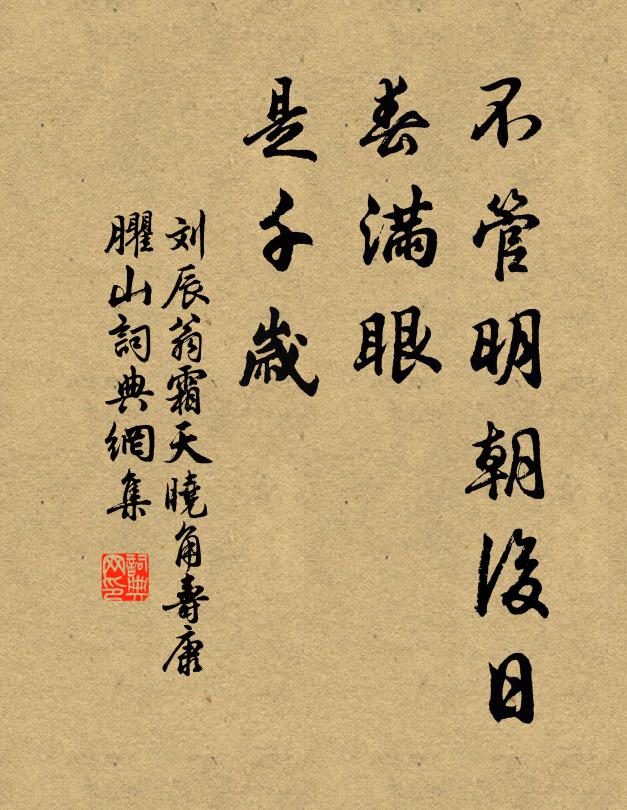 不管明朝後日
春滿眼
是千歲
刘辰翁霜天曉角壽康
臞山詞典網集
詞典网印